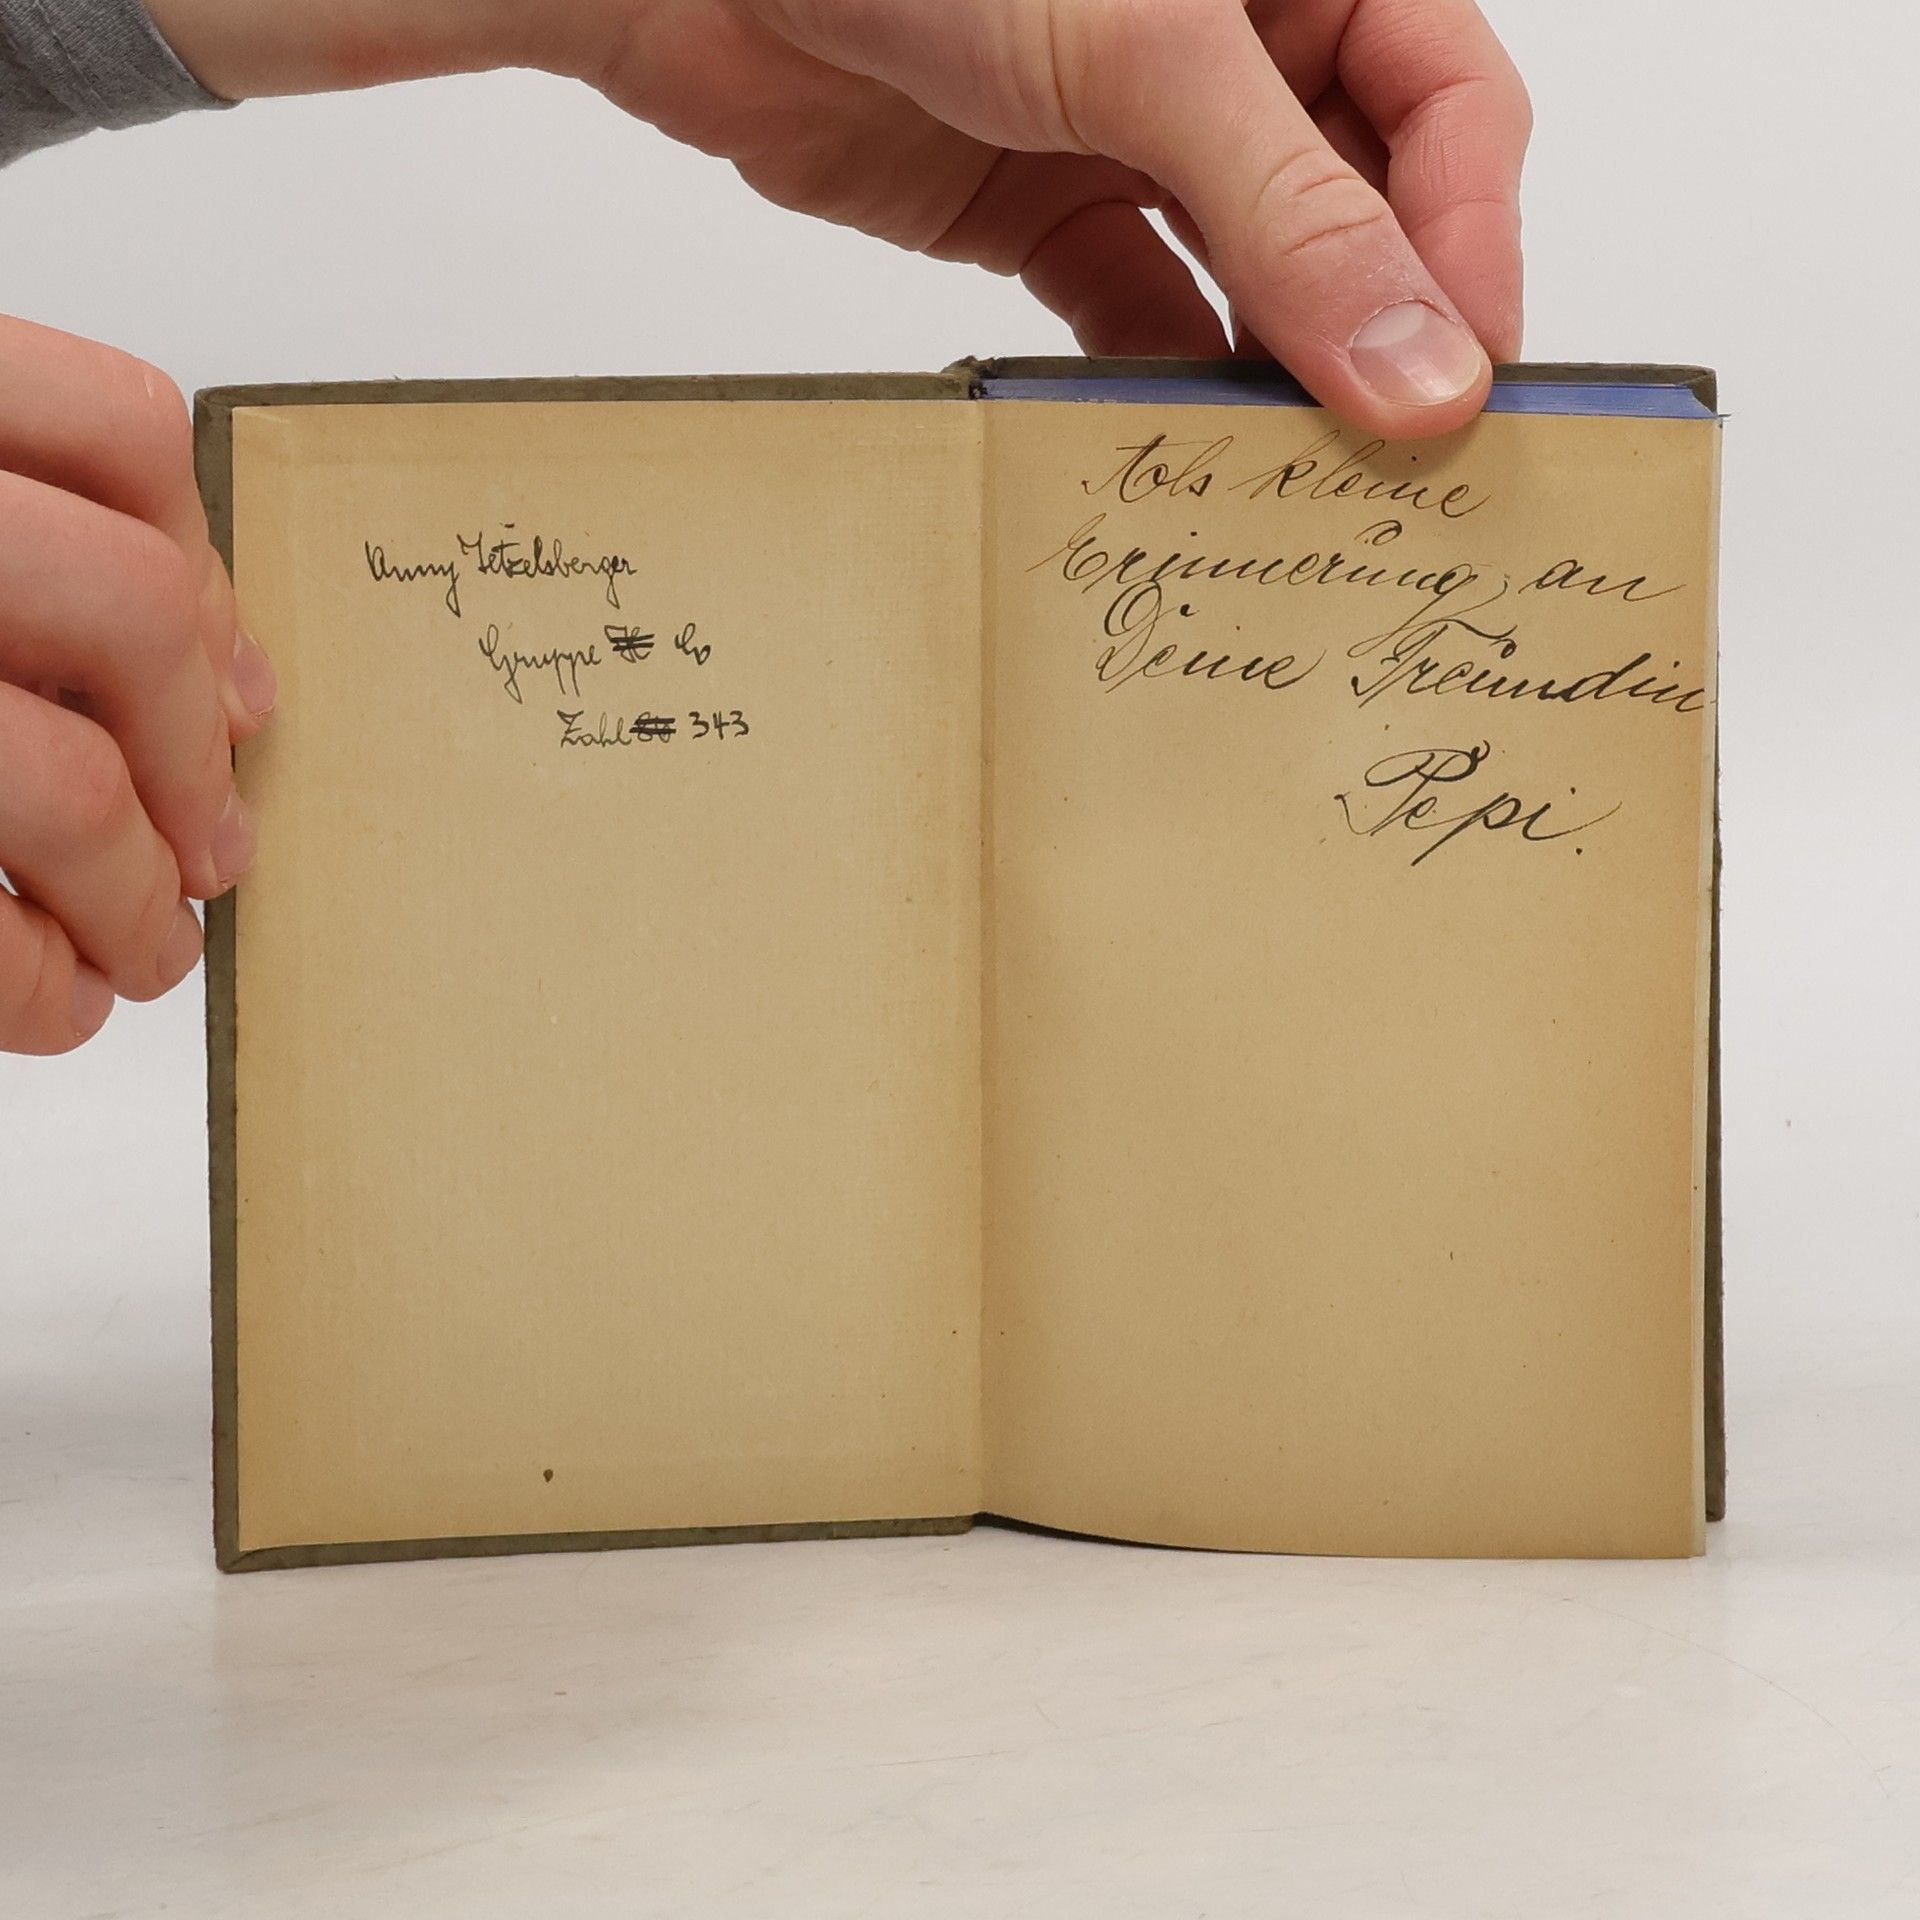 Anny Jetzelsberger
Gruppe
Zahl 343
Als kleine
Erinnerung an
Deine Freundin
Pepi.